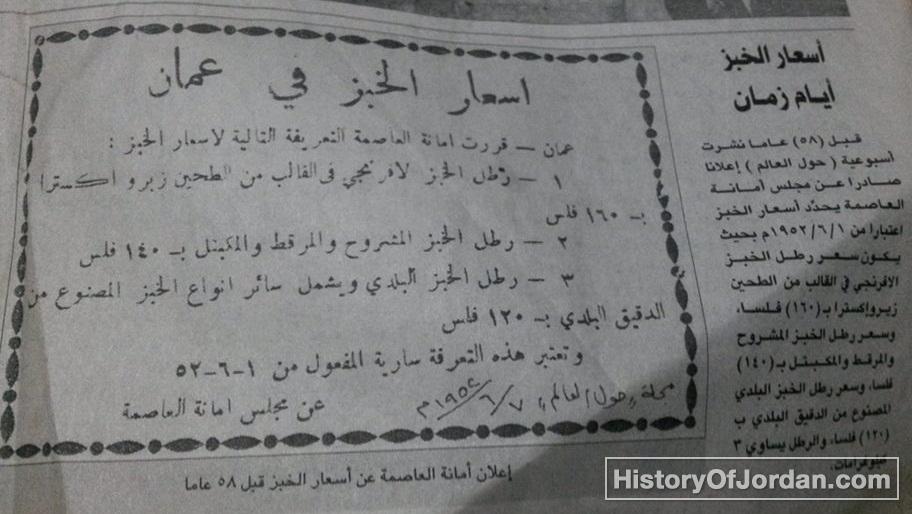 اسعار الخبز في عمان
عمان - قررت امانة العاصمة التعريفة التالية لاسعار الخبز :
١ - رطل الخبز لافرنجي في القالب من الطحين زيرو اكسترا
بـ ١٦٠ فلس
٢ - رطل الخبز المشروح والمرقط والمكبتل بـ ١٤٠ فلس
٣ - رطل الخبز البلدي ويشمل سائر انواع الخبز المصنوع من
الدقيق البلدي بـ ١٢٠ فلس
وتعتبر هذه التعرفة سارية المفعول من ١-٦-٥٢
مجلة "حول العالم" ٧/٦/١٩٥٢م
عن مجلس امانة العاصمة
إعلان أمانة العاصمة عن أسعار الخبز قبل ٥٨ عاما
أسعار الخبز
أيام زمان
قبل (٥٨) عاما نشرت
أسبوعية (حول العالم) إعلانا
صادرا عن مجلس أمانة
العاصمة يحدّد أسعار الخبز
اعتبارا من ١/٦/١٩٥٢م بحيث
يكون سعر رطل الخبز
الافرنجي في القالب من الطحين
زيرو إكسترا بـ (١٦٠) فلسا،
وسعر رطل الخبز المشروح
والمرقط والمكبتل بـ (١٤٠)
فلسا، وسعر رطل الخبز البلدي
المصنوع من الدقيق البلدي ب
(١٢٠) فلسا، والرطل يساوي ٣
كيلوغرامات.
HistoryOfJordan.com